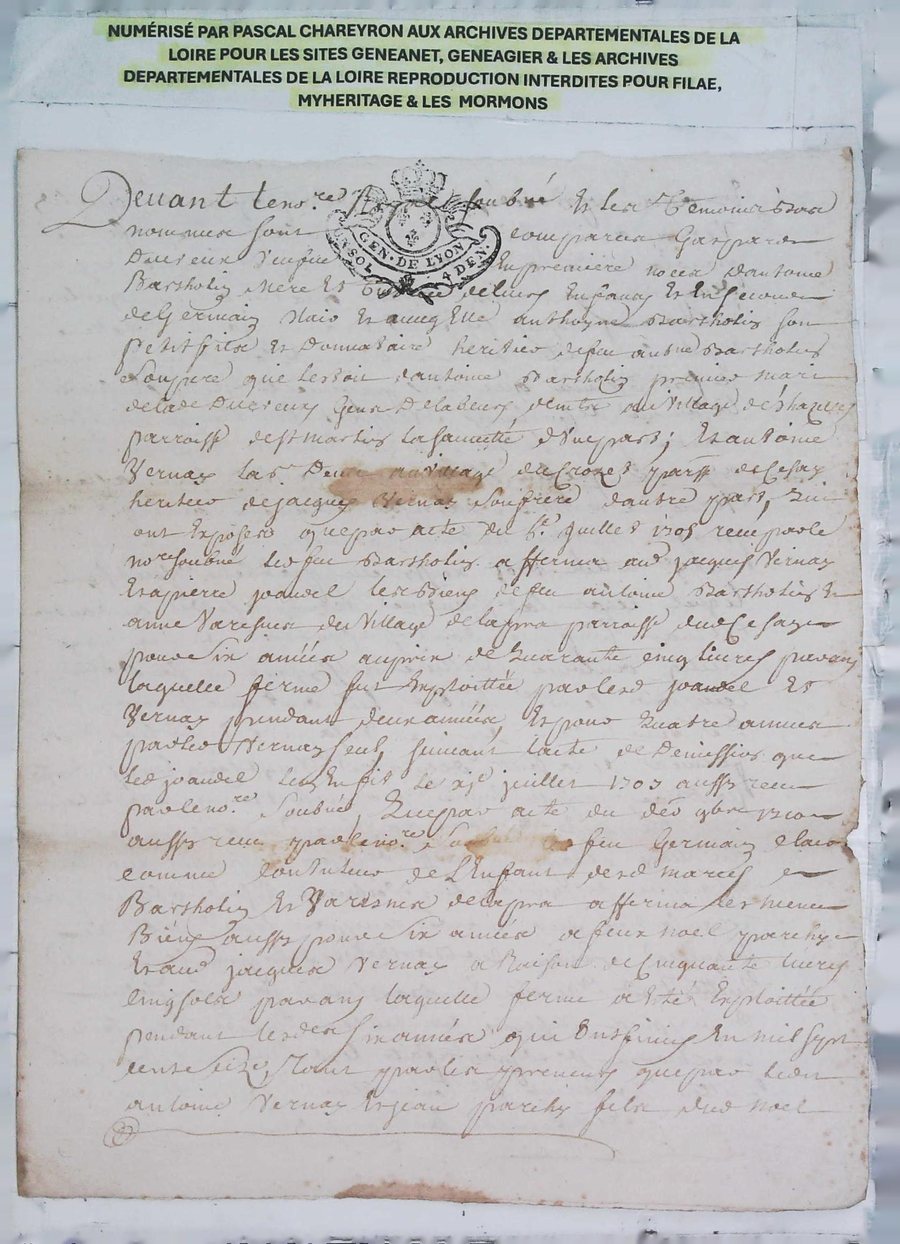 NUMÉRISÉ PAR PASCAL CHAREYRON AUX ARCHIVES DEPARTEMENTALES DE LA
LOIRE POUR LES SITES GENEANET, GENEAGIER & LES ARCHIVES
DEPARTEMENTALES DE LA LOIRE REPRODUCTION INTERDITES POUR FILAE,
MYHERITAGE & LES MORMONS
GEN. DE LYON
UN SOL 4 DEN.
Devant le no.re soubné Et les temoins bas
nommes sont comparus Gaspard
En premiere noces dantoine
Bartholin mere Et de leurs Enfans Et En seconde
de Germain Claio Et anthoyne Bartholin son
petit fils Et Donnataire heritier de feu Bartholin
son pere que le soit dantoine Bartholin premier mari
de lad. au Village de Chazelles
parroisse de st martin la sauveté d'Une part; Et antoine
Vernay au village du Crozet parr. de Cesay
heritier de jacques Vernay son frere dautre part, qui
ont Exposés que par acte du juillet 1705 receu par le
no.re soubné led feu Bartholin afferma aud jacques Vernay
Et a pierre joandel les Biens de feu antoine Bartholin Et
anne du Village de lapra parroisse dud Cesay
pour six années au prix de Quarante cinq livres par an
laquelle ferme fut Exploittée par lesd joandel Et
Vernay pendant deux années Et pour Quatre années
par led Vernay seul suivant lacte de Demission que
led joandel luy En fit le juillet 1707 aussy receu
par le no.re soubné Que par acte du 9bre
aussy receu par le no.re feu Germain Claio
comme de L'Enfant desd mariés
Bartholin Et de lapra afferma les meme
Biens aussy pour six années a feux noel parchy
Et aud jacques Vernay a Raison de Cinquante livres
cinq sols par an laquelle ferme a Eté Exploittée
pendant lesdes six années qui Ont finies En mil sept
cent seize, Tant par les preneurs que par led
antoine Vernay Et jean parchy fils dud noel